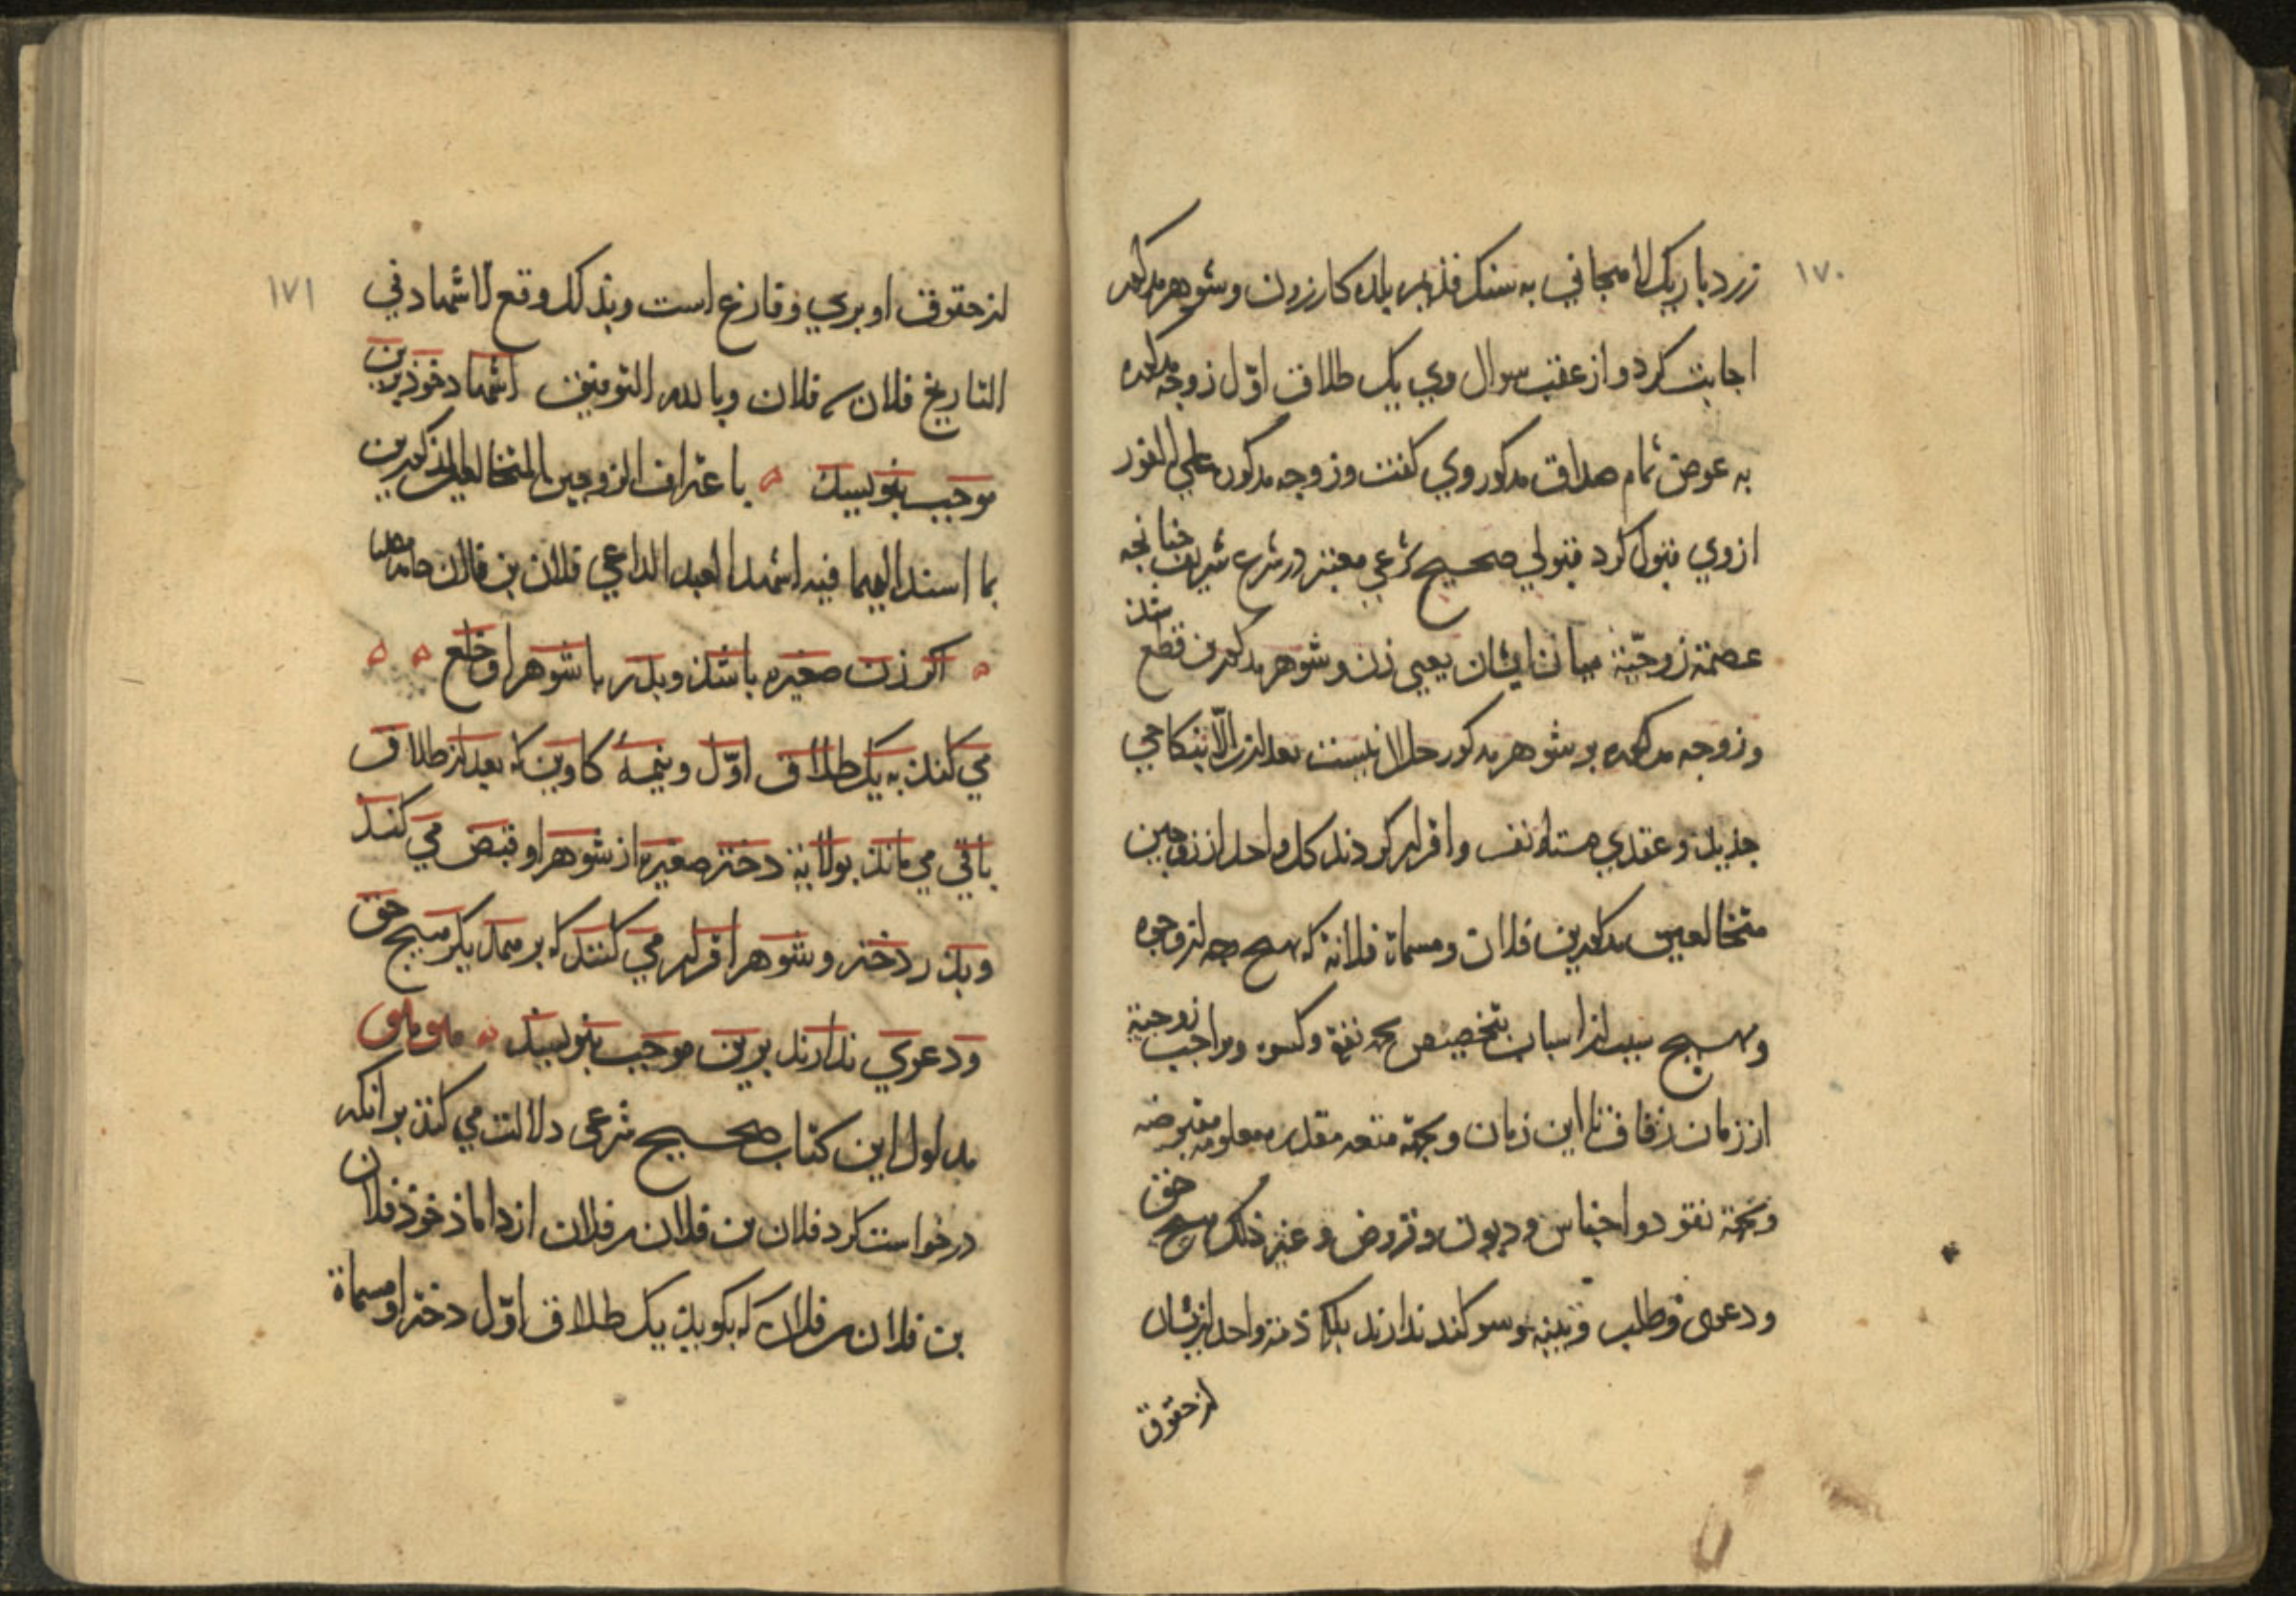 ١٧٠
زرد باریک لامجانی به سنک بلده کازرون و شوهر مذکور
اجابت کرد و از عقب سوال وی یک طلاق اوّل زوجه مذکوره
به عوض تمام صداق مذکور وی کفت و زوجه مذکوره علی الفور
از وی قبول کرد قبولی صحیح شرعی معتبر در شرع شریف چنانچه
عصمة زوجیّة میان ایشان یعنی زن و شوهر مذکورین قطع شذ
و زوجه مذکوره بر شوهر مذکور حلال نیست بعد از الّا بنکاحی
جذیذ و عقدی مستانف و اقرار کردند کل واحد از زوجین
متخالعین مذکورین فلان و مسماة فلانة که بهیچ وجه از وجوه
و بهیچ سبب از اسباب بتخصیص بجهة نفقه و کسوه و مواجب زوجیة
از زمان زفاف تا این زمان و بجهة متعه مقدره معلومه
و بجهة نقود و اجناس و دیون و قروض و غیر ذلک هیچ حق
و دعوی و طلب و بینه و سوکند ندارند بلکه ذمة واحد از ایشان
از حقوق
١٧١
از حقوق او بری و فارغ است و بذلک وقع الاشهاد فی
التاریخ فلان فلان و بالله التوفیق اشهاد خوذ برین
موجب بنویسد ه باعتراف الزوجین المتخالعین المذکورین
بما اسند الیهما فیه اشهد العبد الداعی فلان بن فلان حامدا مصلیا
ه اکر زن صغیره باشذ و پدر با شوهر او خلع ه ه
می کند به یک طلاق اوّل و نیمهٔ کاوین که بعد از طلاق
باقی می ماند بولایة دختر صغیره از شوهر او قبض می کند
و پدر دختر و شوهر اقرار می کنند که بر همدیکر هیچ حق
و دعوی ندارند برین موجب بنویسد ه
مدلول این کتاب صحیح شرعی دلالت می کند بر آنکه
درخواست کرد فلان بن فلان بن فلان از داماذ خوذ فلان
بن فلان بن فلان که بکوید یک طلاق اوّل دختر او مسماة